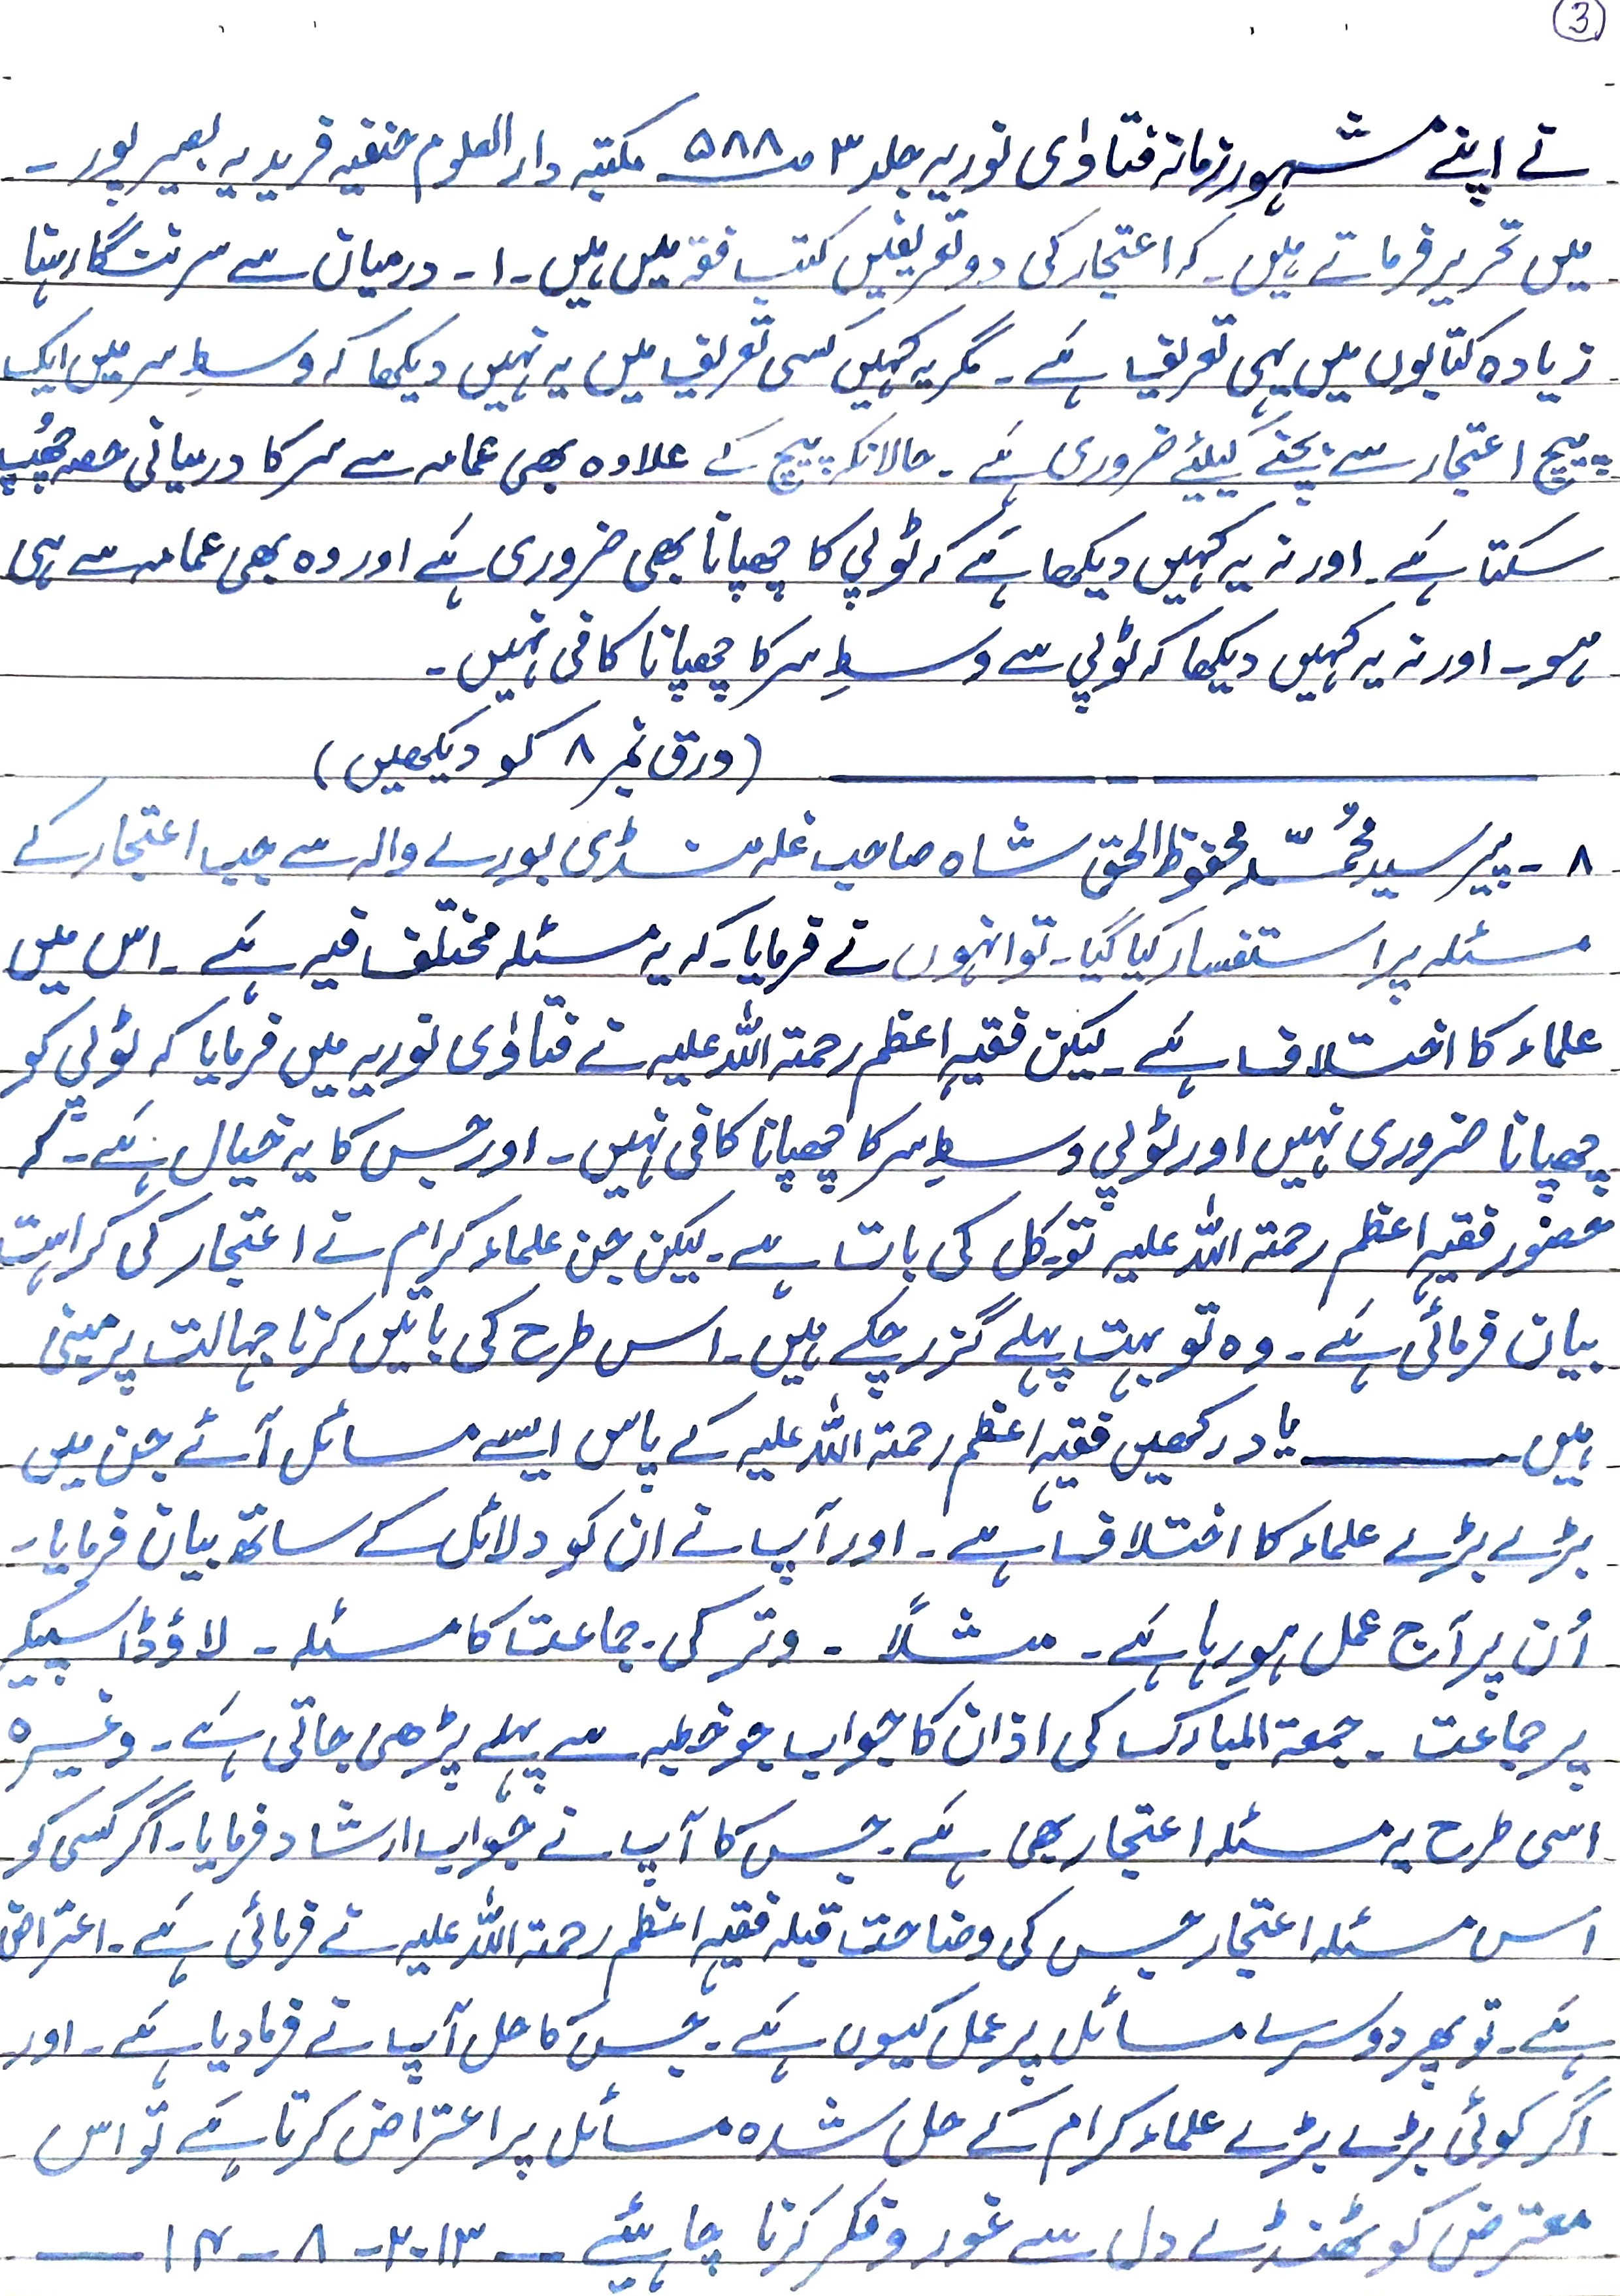 3
نے اپنے مشہور زمانہ فتاوای نوریہ جلد ۳ صـ ۵۸۸ مکتبہ دار العلوم حنفیہ فریدیہ بصیر پور ۔
میں تحریر فرماتے ہیں ۔ کہ اعتجار کی دو تعریفیں کتب فقہ میں ہیں ۔ ۱ ۔ درمیان سے سر ننگا رہنا
زیادہ کتابوں میں یہی تعریف ہے ۔ مگر یہ کہیں کسی تعریف میں یہ نہیں دیکھا کہ وسطِ سر میں ایک
پیچ اعتجار سے بچنے کیلئے ضروری ہے ۔ حالانکہ پیچ کے علاوہ بھی عمامہ سے سر کا درمیانی حصہ چھُپ
سکتا ہے ۔ اور نہ یہ کہیں دیکھا ہے کہ ٹوپی کا چھپانا بھی ضروری ہے اور وہ بھی عمامہ سے ہی
ہو ۔ اور نہ یہ کہیں دیکھا کہ ٹوپی سے وسطِ سر کا چھپانا کافی نہیں ۔
(ورق نمبر ۸ کو دیکھیں)
۸ ۔ پیر سید محُمّد محفوظ الحق شاہ صاحب غلہ منڈی بورے والہ سے جب اعتجار کے
مسئلہ پر استفسار کیا گیا ۔ تو انہوں نے فرمایا ۔ کہ یہ مسئلہ مختلف فیہ ہے ۔ اس میں
علماء کا اختلاف ہے ۔ لیکن فقیہِ اعظم رحمتہ اللہ علیہ نے فتاوٰی نوریہ میں فرمایا کہ ٹوپی کو
چھپانا ضروری نہیں اور ٹوپی وسطِ سر کا چھپانا کافی نہیں ۔ اور جس کا یہ خیال ہے ۔ کہ
حضور فقیہِ اعظم رحمتہ اللہ علیہ تو کل کی بات ہے ۔ لیکن جن علماء کرام نے اعتجار کی کراہت
بیان فرمائی ہے ۔ وہ تو بہت پہلے گزر چکے ہیں ۔ اس طرح کی باتیں کرنا جہالت پر مبنی
ہیں ــــــ یاد رکھیں فقیہِ اعظم رحمتہ اللہ علیہ کے پاس ایسے مسائل آئے جن میں
بڑے بڑے علماء کا اختلاف ہے ۔ اور آپ نے ان کو دلائل کے ساتھ بیان فرمایا ۔
اُن پر آج عمل ہو رہا ہے ۔ مثلاً ۔ وتر کی جماعت کا مسئلہ ۔ لاؤڈ اسپیکر
پر جماعت ۔ جمعۃ المبارک کی اذان کا جواب جو خطبہ سے پہلے پڑھی جاتی ہے ۔ وغیرہ
اسی طرح یہ مسئلہ اعتجار بھی ہے ۔ جس کا آپ نے جواب ارشاد فرمایا ۔ اگر کسی کو
اس مسئلہ اعتجار جس کی وضاحت قبلہ فقیہِ اعظم رحمتہ اللہ علیہ نے فرمائی ہے ۔ اعتراض
ہے ۔ تو پھر دوسرے مسائل پر عمل کیوں ہے ۔ جس کا حل آپ نے فرما دیا ہے ۔ اور
اگر کوئی بڑے بڑے علماء کرام کے حل شدہ مسائل پر اعتراض کرتا ہے تو اس
معترض کو ٹھنڈے دل سے غور و فکر کرنا چاہیئے ــ ۲۰۱۳ ۔ ۸ ۔ ۱۴ ــ